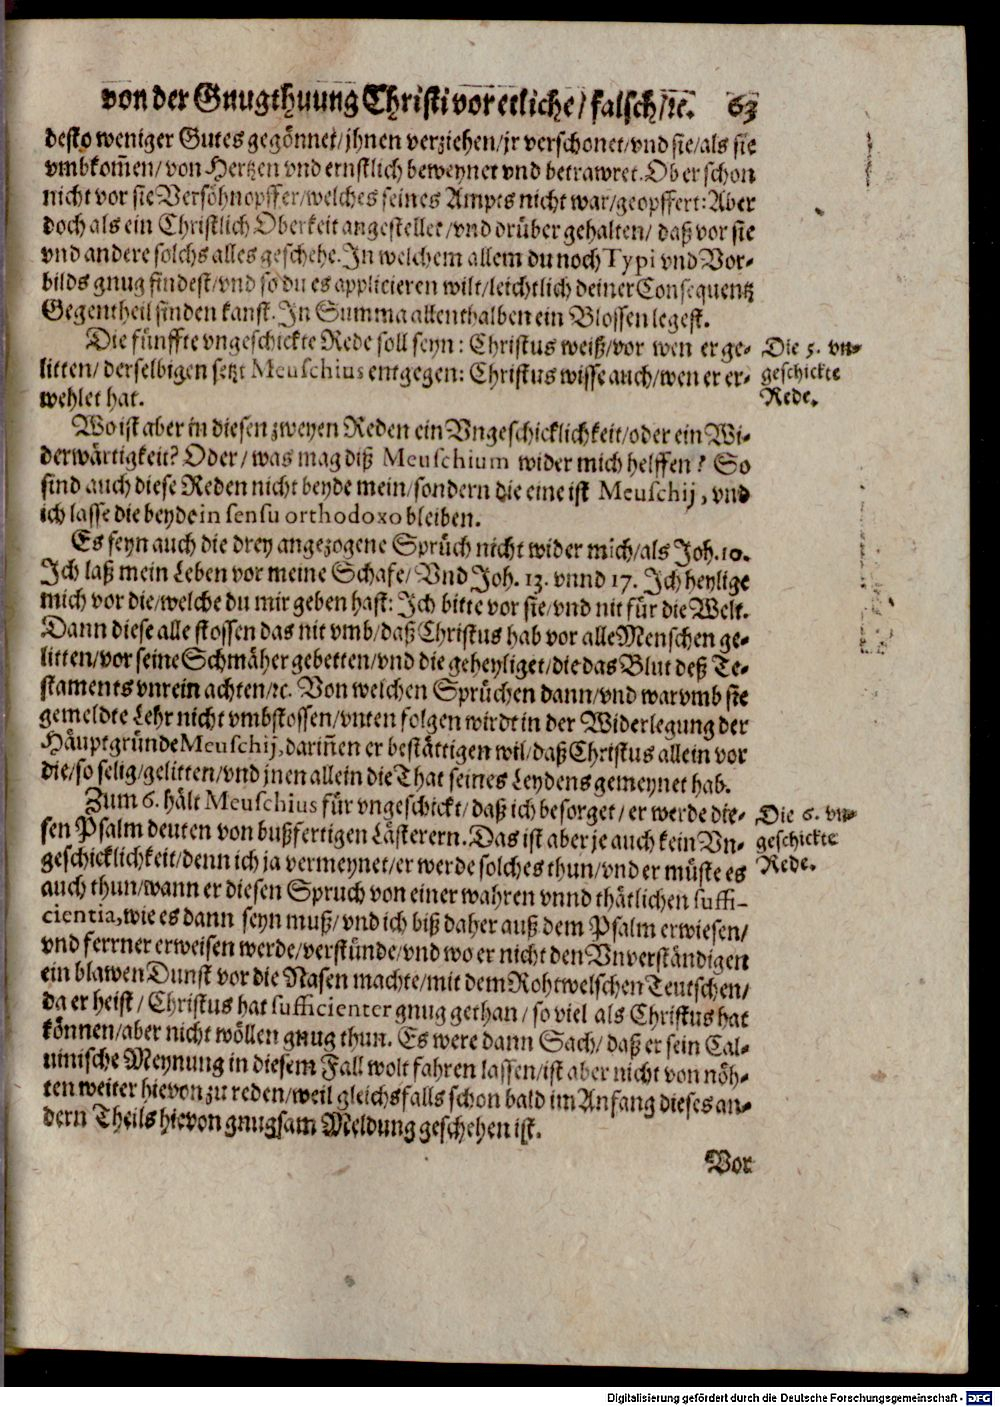 von der Gnugthuung Christi vor etliche/ falsch/ꝛc. 63
desto weniger Gutes gegönnet/jhnen verziehen/jr verschonet/vnd sie/als sie
vmbkom̃en/von Hertzen vnd ernstlich beweynet vnd betrawret. Ob er schon
nicht vor sie Versöhnopffer/welches seines Ampts nicht war/geopffert: Aber
doch als ein Christlich Oberkeit angestellet/vnd drüber gehalten/ daß vor sie
vnd andere solchs alles geschehe. In welchem allem du noch Typi vnd Vor-
bilds gnug findest/vnd so du es applicieren wilt/leichtlich deiner Consequentz
Gegentheil finden kanst. In Summa allenthalben ein Blossen legest.
Die fünffte vngeschickte Rede soll seyn: Christus weiß/vor wen er ge-
litten/ derselbigen setzt Meuschius entgegen: Christus wisse auch/wen er er-
wehlet hat.
Die 5. vn-
geschickte
Rede.
Wo ist aber in diesen zweyen Reden ein Vngeschicklichkeit/oder ein Wi-
derwärtigkeit? Oder/ was mag diß Meuschium wider mich helffen? So
sind auch diese Reden nicht beyde mein/sondern die eine ist Meuschij, vnd
ich lasse die beyde in sensu orthodoxo bleiben.
Es seyn auch die drey angezogene Sprüch nicht wider mich/als Joh. 10.
Ich laß mein Leben vor meine Schafe/ Vnd Joh. 13. vnnd 17. Ich heylige
mich vor die/welche du mir geben hast: Ich bitte vor sie/vnd nit für die Welt.
Dann diese alle stossen das nit vmb/daß Christus hab vor alle Menschen ge-
litten/vor seine Schmäher gebetten/vnd die geheyliget/die das Blut deß Te-
staments vnrein achten/ꝛc. Von welchen Sprüchen dann/vnd warvmb sie
gemeldte Lehr nicht vmbstossen/vnten folgen wirdt in der Widerlegung der
Häuptgründe Meuschij, dariñen er bestättigen wil/daß Christus allein vor
die/so selig/gelitten/vnd jnen allein die That seines Leydens gemeynet hab.
Zum 6. hält Meuschius für vngeschickt/ daß ich besorget/ er werde die-
sen Psalm deuten von bußfertigen Lästerern. Das ist aber je auch kein Vn-
geschicklichkeit/denn ich ja vermeynet/er werde solches thun/vnd er müste es
auch thun/wann er diesen Spruch von einer wahren vnnd thätlichen suffi-
cientia, wie es dann seyn muß/vnd ich biß daher auß dem Psalm erwiesen/
vnd ferrner erweisen werde/verstünde/vnd wo er nicht den Vnverständigen
ein blawen Dunst vor die Nasen machte/mit dem Rohtwelschen Teutschen/
da er heist/ Christus hat sufficienter gnug gethan/ so viel als Christus hat
können/aber nicht wöllen gnug thun. Es were dann Sach/ daß er sein Cal-
uinische Meynung in diesem Fall wolt fahren lassen/ist aber nicht von nöh-
ten weiter hievon zu reden/weil gleichsfalls schon bald im Anfang dieses an-
dern Theils hievon gnugsam Meldung geschehen ist.
Die 6. vn-
geschickte
Rede.
Vor
Digitalisierung gefördert durch die Deutsche Forschungsgemeinschaft - DFG